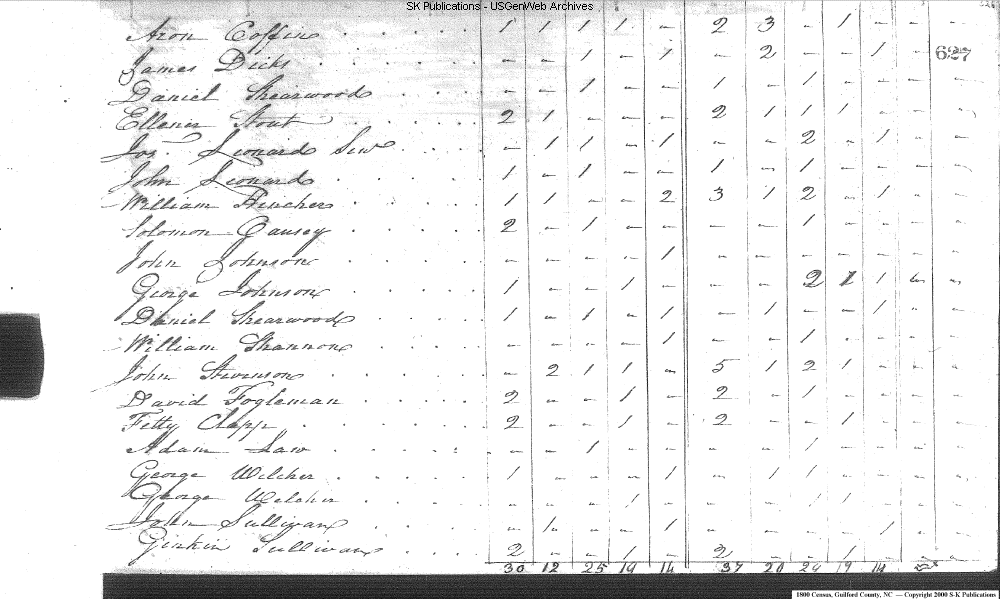 SK Publications - USGenWeb Archives
Aron Coffin 1 1 1 1 - 2 3 - 1 - - -
627
James Dicks - - 1 - 1 - 2 - - 1 - -
Daniel Shearwood - - 1 - - 1 - 1 - - - -
Stout 2 1 - - - 2 1 1 1 - - -
Jos. Leonard Sen - 1 1 - 1 - - 2 - 1 - -
John Leonard 1 - 1 - - 1 - 1 - - - -
William 1 1 - - 2 3 1 2 - 1 - -
Solomon Causey 2 - 1 - - - - 1 - - - -
John Johnson - - - - 1 - - - - - - -
George Johnson 1 - - 1 - - - 2 1 1 - -
Daniel Shearwood 1 - 1 - 1 - 1 - - 1 - -
William Shannon - - - - 1 - - 1 - - - -
John Stevenson - 2 1 1 - 5 1 2 1 - - -
David Fogleman 2 - - 1 - 2 - 1 - - - -
Fetty Clapp 2 - - 1 - 2 - - 1 - - -
Adam Law - - 1 - - - - 1 - - - -
George Welcher 1 - - - 1 - 1 1 - - - -
George Welcher - - - 1 - - - 1 1 - - -
John Sullivan - 1 - - 1 - - - - 1 - -
Sullivan 2 - - 1 - 2 - - 1 - - -
30 12 25 19 14 37 20 24 19 14
1800 Census, Guilford County, NC — Copyright 2000 S-K Publications